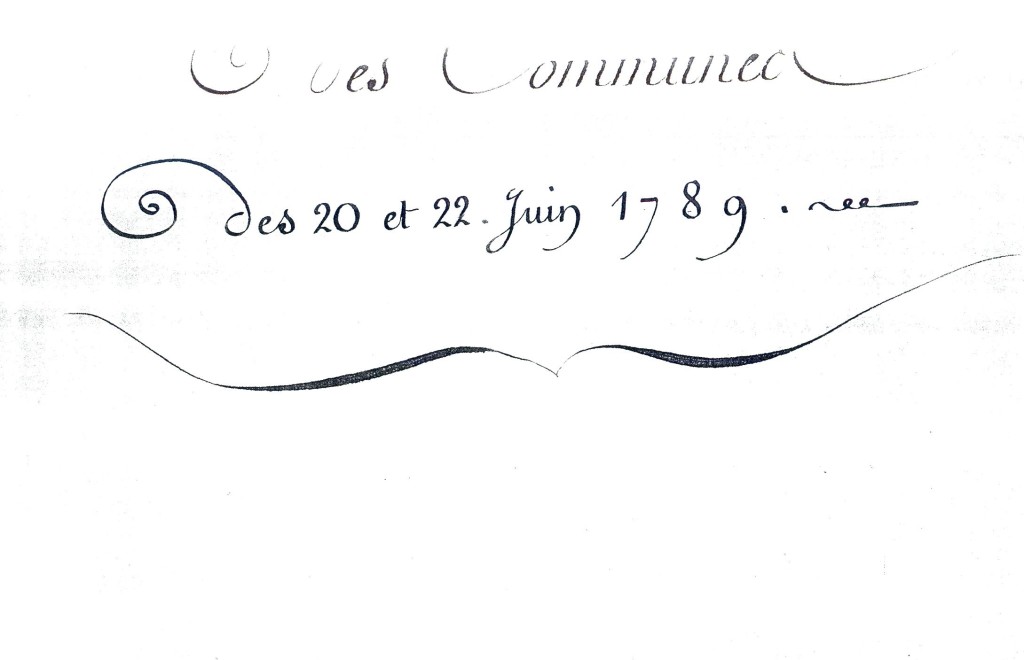 des Communes
des 20 et 22. Juin 1789.